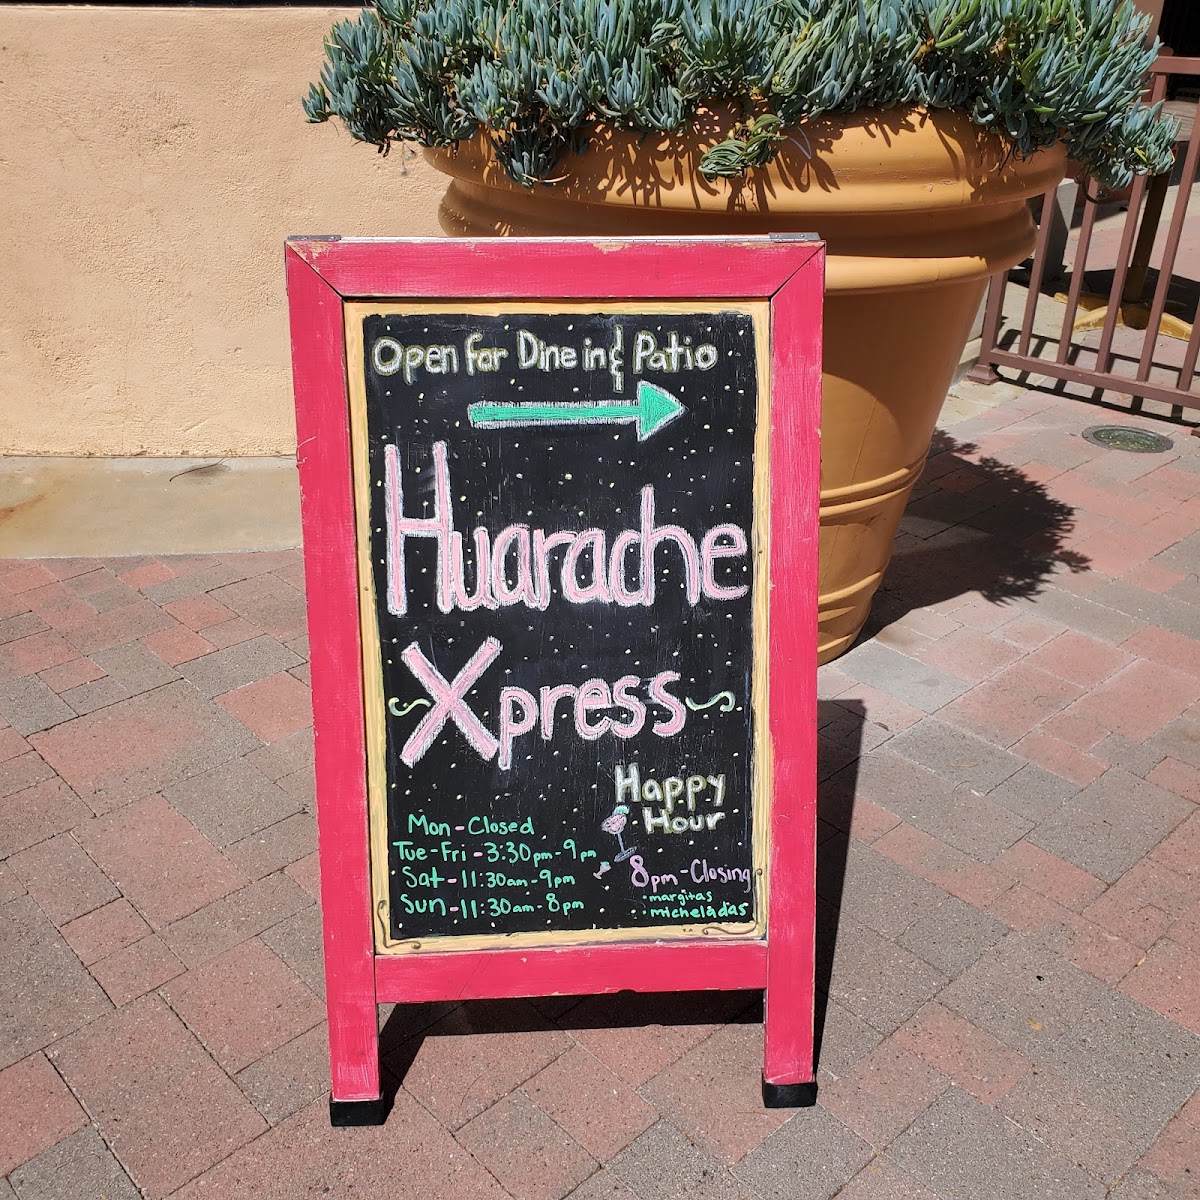 Open for Dine in & Patio
Huarache
Xpress
Happy
Hour
8pm-Closing
·margitas
·micheladas
Mon-Closed
Tue-Fri-3:30pm-9pm
Sat-11:30am-9pm
Sun-11:30am-8pm